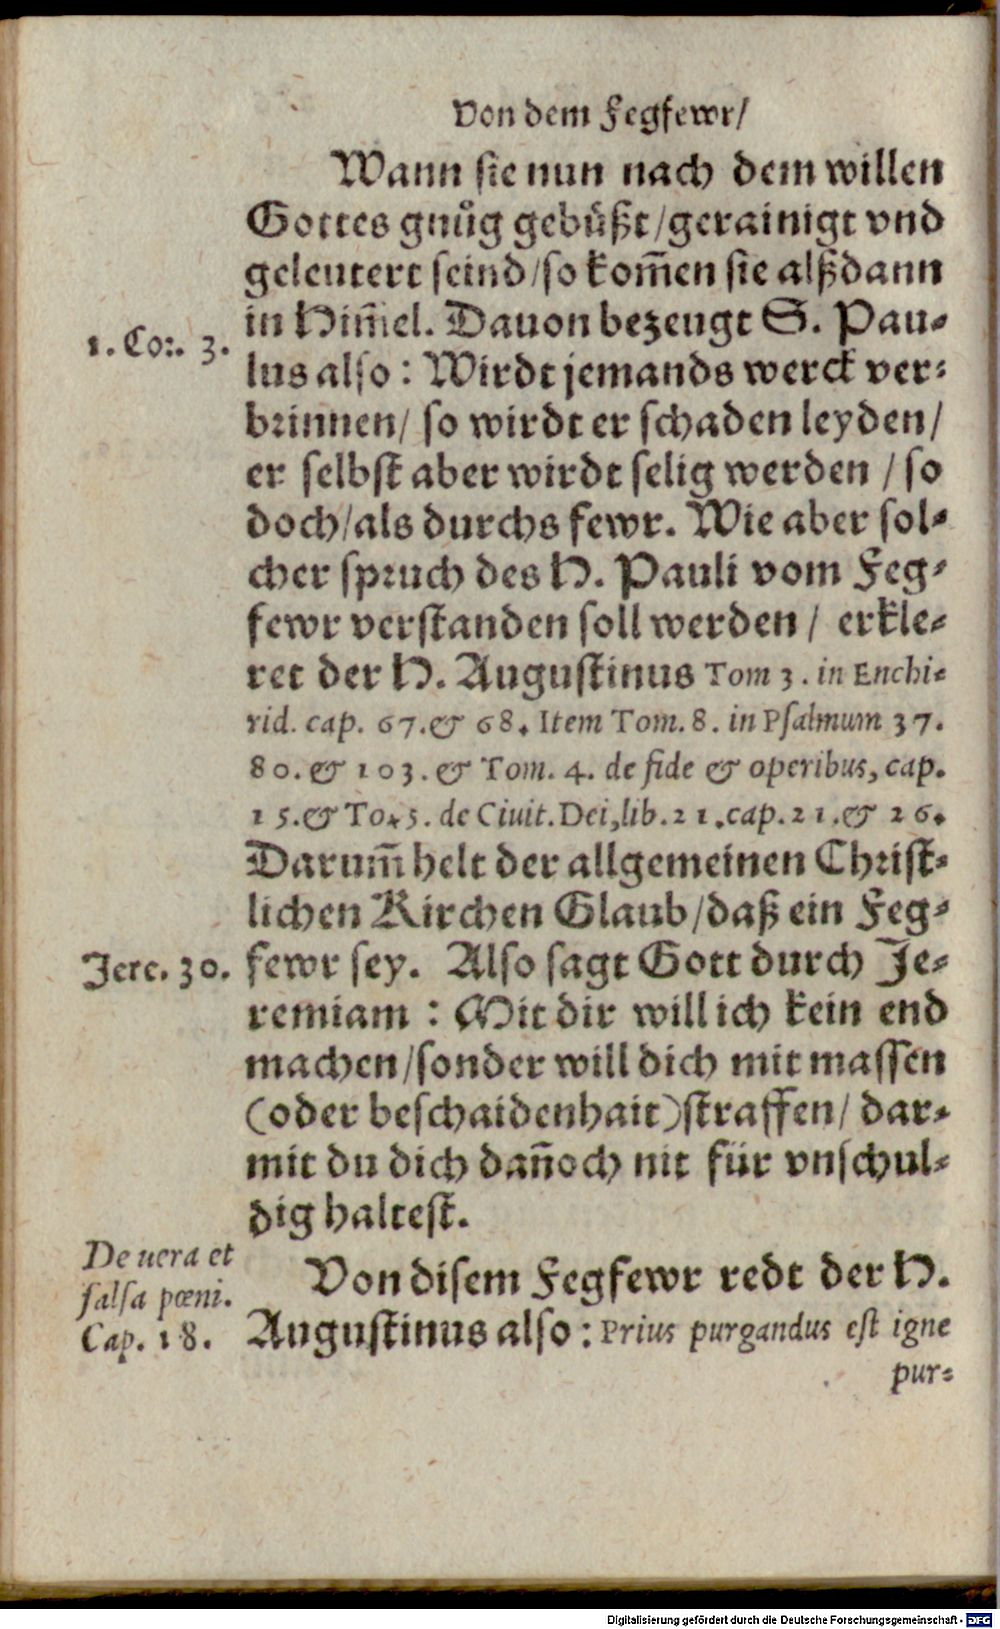 Von dem Fegfewr/
Wann sie nun nach dem willen
Gottes gnůg gebüßt/gerainigt vnd
geleutert seind/so kom̃en sie alßdann
in Him̃el. Dauon bezeugt S. Pau-
1. Cor. 3.
lus also: Wirdt jemands werck ver-
brinnen/ so wirdt er schaden leyden/
er selbst aber wirdt selig werden / so
doch/als durchs fewr. Wie aber sol-
cher spruch des H. Pauli vom Feg-
fewr verstanden soll werden / erkle-
ret der H. Augustinus Tom 3. in Enchi-
rid. cap. 67.& 68. Item Tom. 8. in Psalmum 37.
80. & 103. & Tom. 4. de fide & operibus, cap.
15.& To. 5. de Ciuit. Dei, lib. 21. cap. 21. & 26.
Darum̃ helt der allgemeinen Christ-
lichen Kirchen Glaub/daß ein Feg-
Jere. 30.
fewr sey. Also sagt Gott durch Je-
remiam : Mit dir will ich kein end
machen/sonder will dich mit massen
(oder beschaidenhait)straffen/ dar-
mit du dich dañoch nit für vnschul-
dig haltest.
De uera et
falsa pœni.
Cap. 18.
Von disem Fegfewr redt der H.
Augustinus also: Prius purgandus est igne
pur-
Digitalisierung gefördert durch die Deutsche Forschungsgemeinschaft - DFG